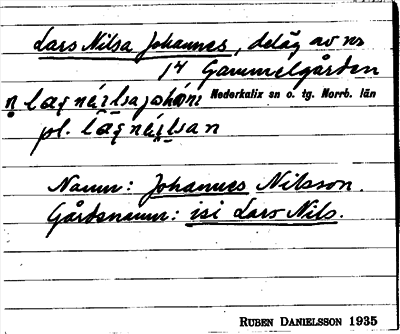 Lars Nilsa Johannes, deläg av nr
14 Gammelgården
Nederkalix sn o. tg. Norrb. län
pl.
Namn: Johannes Nilsson.
Gårdsnamn: isi Lars Nils.
RUBEN DANIELSSON 1935